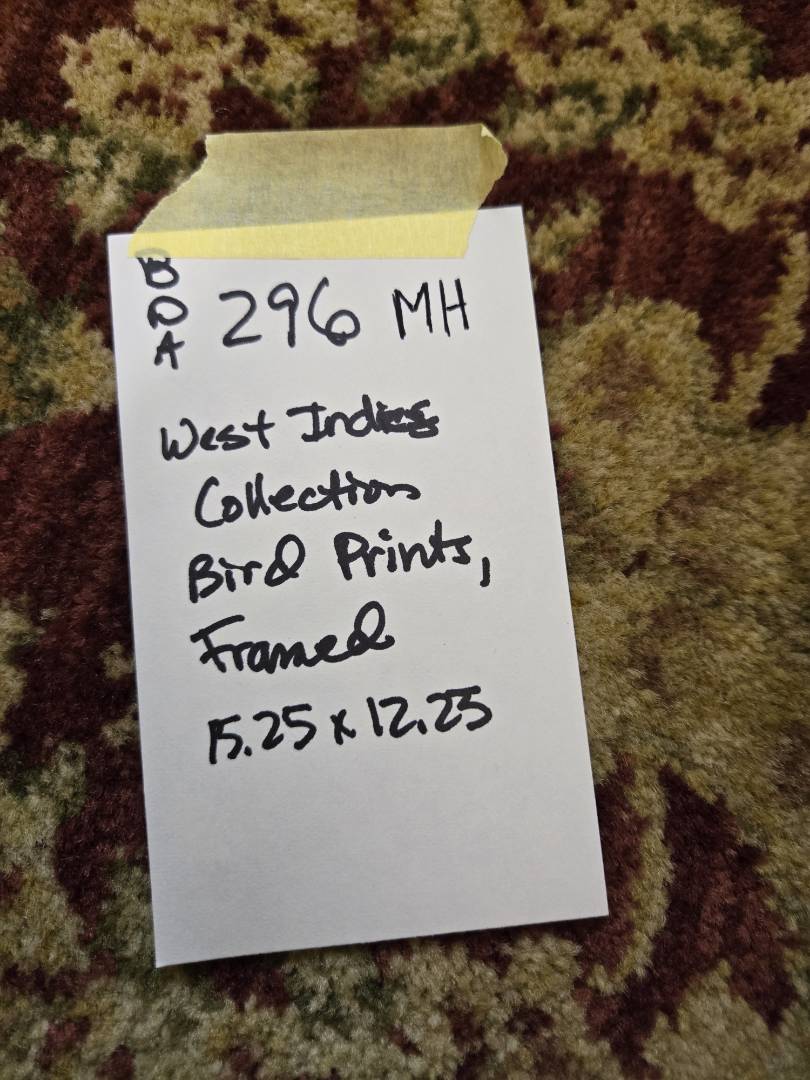 BDA 296 MH
West Indies
Collection
Bird Prints,
Framed
15.25 x 12.25